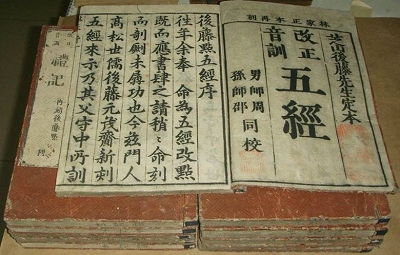 林家正本再刻
芝山後藤先生定本
改正
音訓
五經
男師周
孫師邵
同校
後藤點五經序
往年余奉 命為五經改點
既而應書肆之請稍〻命刻
而剞劂未孱功也今茲門人
髙松世儒後藤元茂齋新刻
五經來示乃其父守中所訓
禮記
再刻後藤點